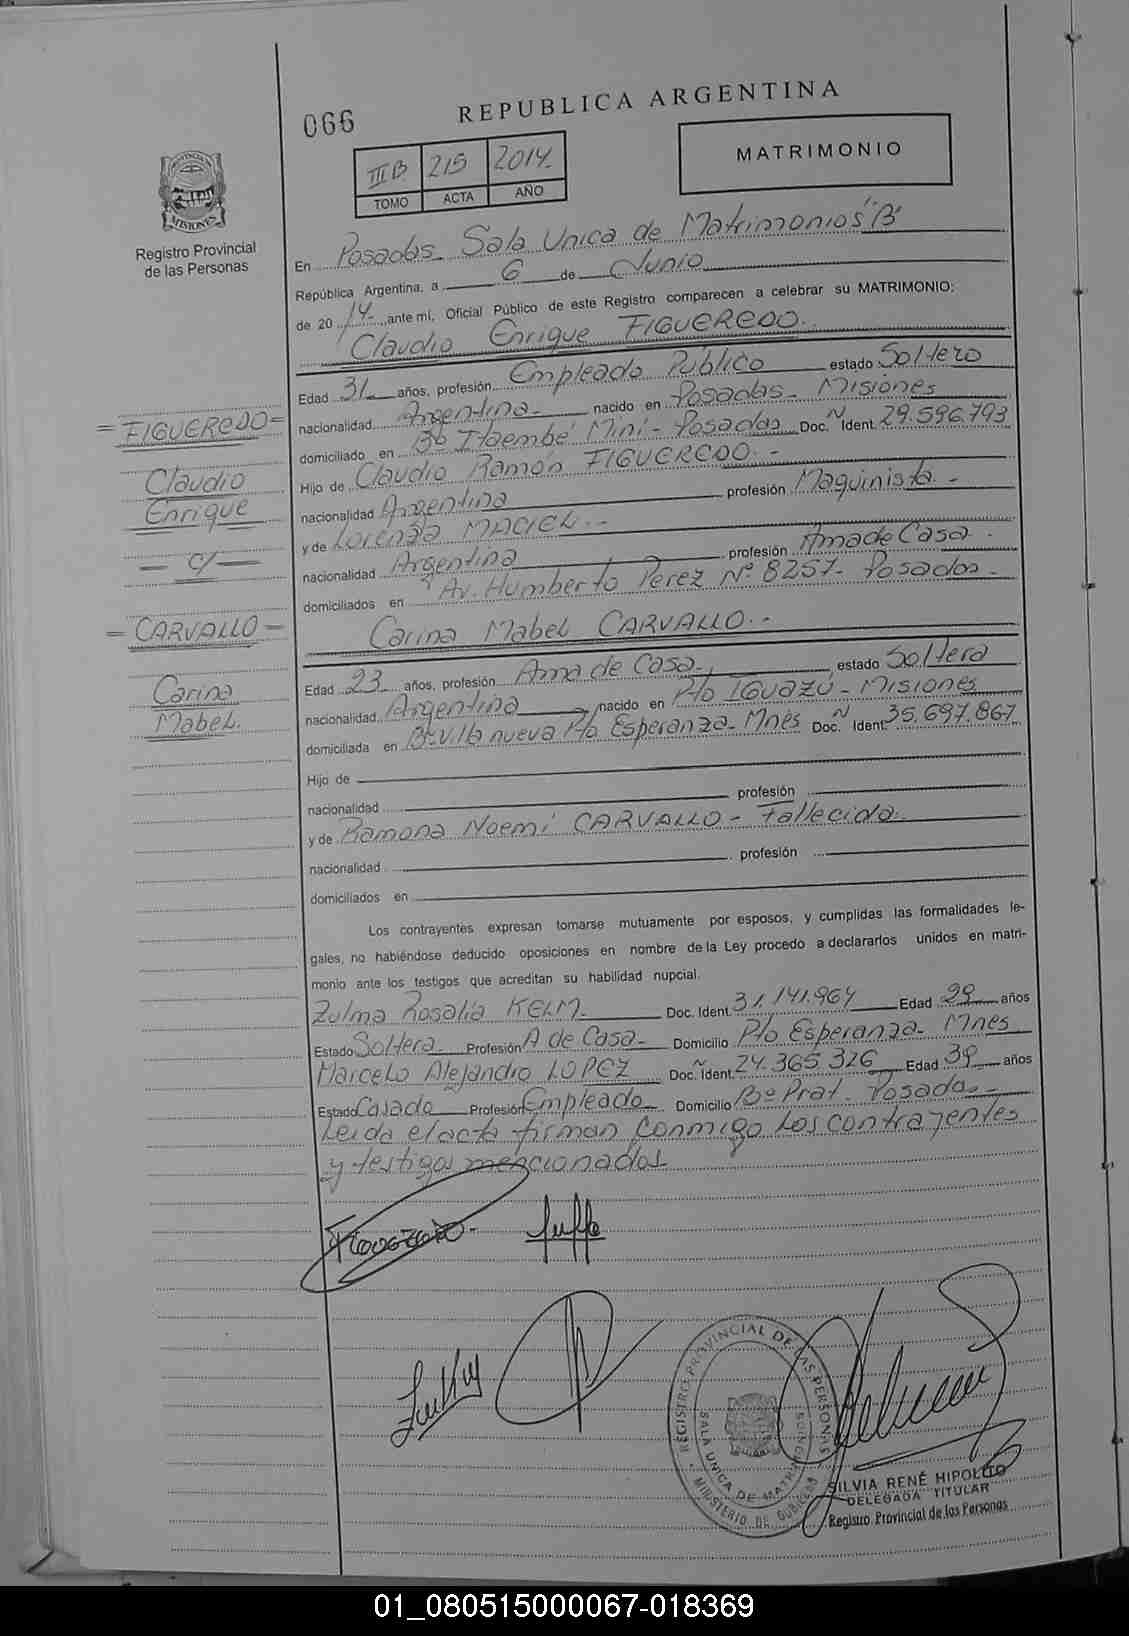 066
REPUBLICA ARGENTINA
III B 215 2014
TOMO ACTA AÑO
MATRIMONIO
PROVINCIA DE MISIONES
Registro Provincial
de las Personas
En Posadas Sala Unica de Matrimonios "B"
República Argentina, a 6 de Junio
de 2014 ante mí, Oficial Público de este Registro comparecen a celebrar su MATRIMONIO:
Claudio Enrique FIGUEREDO.
Edad 31 años, profesión Empleado Publico estado Soltero
nacionalidad Argentina nacido en Posadas - Misiones
domiciliado en Bº Itaembé Miní - Posadas Doc. N Ident. 29.596.793
Hijo de Claudio Ramón FIGUEREDO.-
nacionalidad Argentina profesión Maquinista.-
y de Lorenza MACIEL.-
nacionalidad Argentina profesión Ama de Casa.
domiciliados en Av. Humberto Perez Nº 8257- Posadas.
Carina Mabel CARVALLO.-
Edad 23 años, profesión Ama de Casa estado Soltera
nacionalidad Argentina nacido en Pto IGUAZÚ - Misiones
domiciliada en Bº Villa nueva Pto Esperanza - Mnes Doc. N Ident. 35.697.867
Hijo de
nacionalidad profesión
y de Ramona Noemi CARVALLO - Fallecida.
nacionalidad profesión
domiciliados en
Los contrayentes expresan tomarse mutuamente por esposos, y cumplidas las formalidades le-
gales, no habiéndose deducido oposiciones en nombre de la Ley procedo a declararlos unidos en matri-
monio ante los testigos que acreditan su habilidad nupcial.
Zulma Rosalía KELM. Doc. Ident. 31.141.964 Edad 29 años
Estado Soltera Profesión A de Casa Domicilio Pto Esperanza - Mnes
Marcelo Alejandro LOPEZ Doc. N Ident. 24.365.326 Edad 39 años
Estado Casado Profesión Empleado Domicilio Bº Prat. Posadas
Leida el acta firman conmigo los contrayentes
y testigos mencionados
= FIGUEREDO =
Claudio
Enrique
- c/ -
= CARVALLO =
Carina
Mabel.
REGISTRO PROVINCIAL DE LAS PERSONAS
SALA UNICA DE MATRIMONIOS
MINISTERIO DE GOBIERNO
SILVIA RENÉ HIPOLITO
DELEGADA TITULAR
Registro Provincial de las Personas
01_080515000067-018369